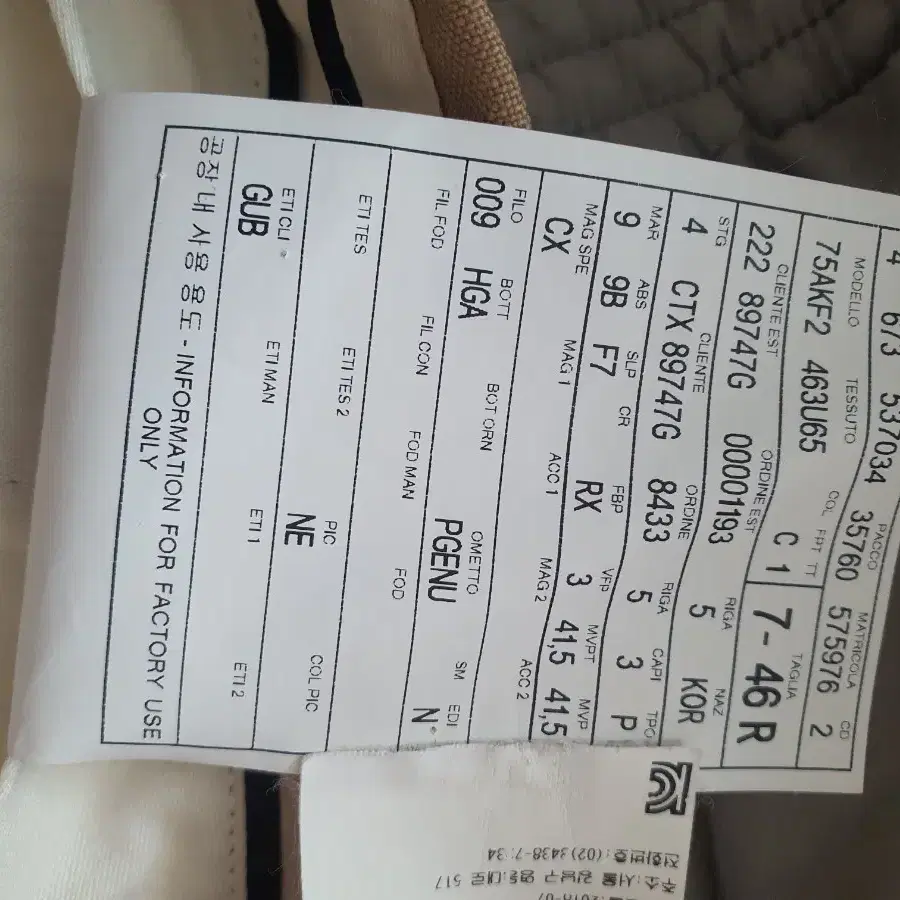 4 673 537034 35760 575976 2
PACCO MATRICOLA CD
MODELLO TESSUTO COL FPT TT TAGLIA
75AKF2 463U65 C 1 7-46 R
CLIENTE EST ORDINE EST RIGA NAZ
222 89747G 00001193 5 KOR
STG CLIENTE ORDINE RIGA CAPI TPO
4 CTX 89747G 8433 5 3 P
MAR ABS SLP CR FBP VFP MVPT MVP
9 9B F7 RX 3 41,5 41,5
MAG SPE MAG 1 ACC 1 MAG 2 ACC 2
CX
FILO BOTT BOT ORN OMETTO SM EDI
009 HGA PGENU N
FIL FOD FIL CON FOD MAN FOD
ETI TES ETI TES 2 PIC COL PIC
NE
ETI CLI ETI MAN ETI 1 ETI 2
GUB
공장 내 사용 용도 - INFORMATION FOR FACTORY USE
ONLY
주소:서울 강남구 영동대로 517
전화번호:(02)3438-